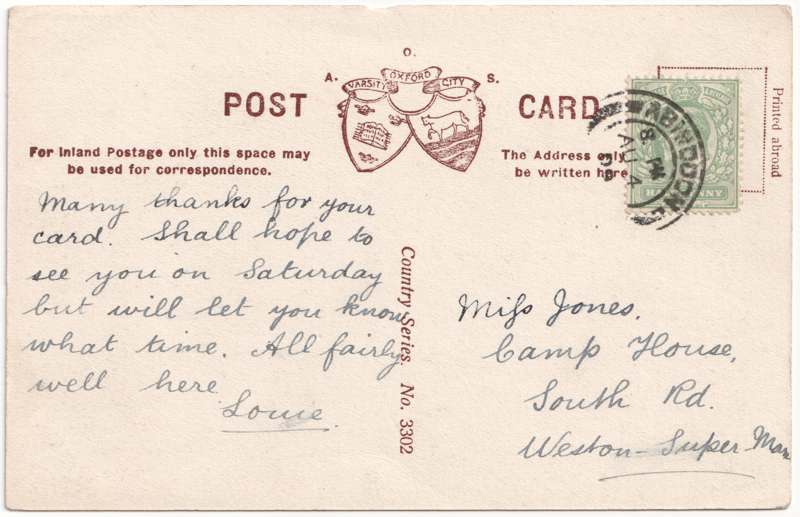 A. O. S.
VARSITY OXFORD CITY
POST CARD
For Inland Postage only this space may
be used for correspondence.
The Address only
be written here
Printed abroad
ABINGDON
8 PM
AU 4
HALFPENNY
Many thanks for your
card. Shall hope to
see you on Saturday
but will let you know
what time. All fairly
well here
Louie.
Country Series. No. 3302
Miss Jones.
Camp House,
South Rd.
Weston-Super-Mare